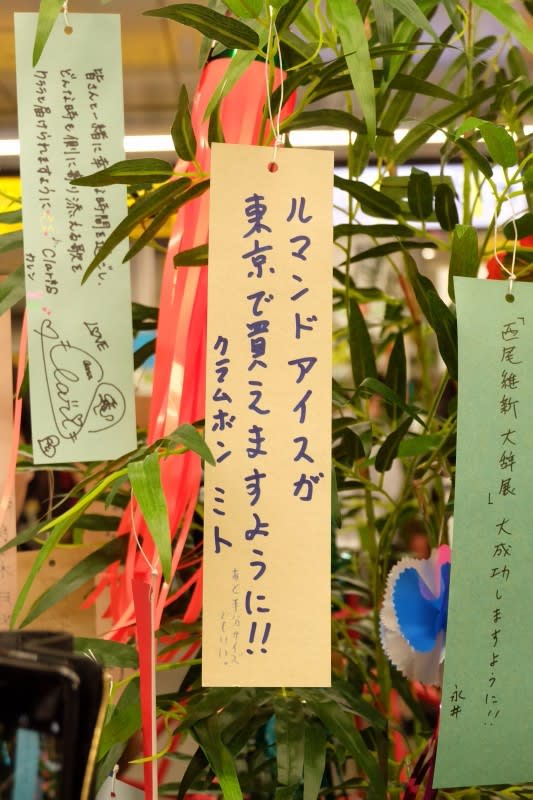 ルマンドアイスが
東京で買えますように!!
クラムボン ミト
あと半分サイズ
でもいい。
「西尾維新 大辞展」大成功しますように!!
永井
皆さんと一緒に幸せな時間を過ごし、
どんな時も側に寄り添える歌を
クララと届けられますように ♪ ClariS
カレン
LOVE